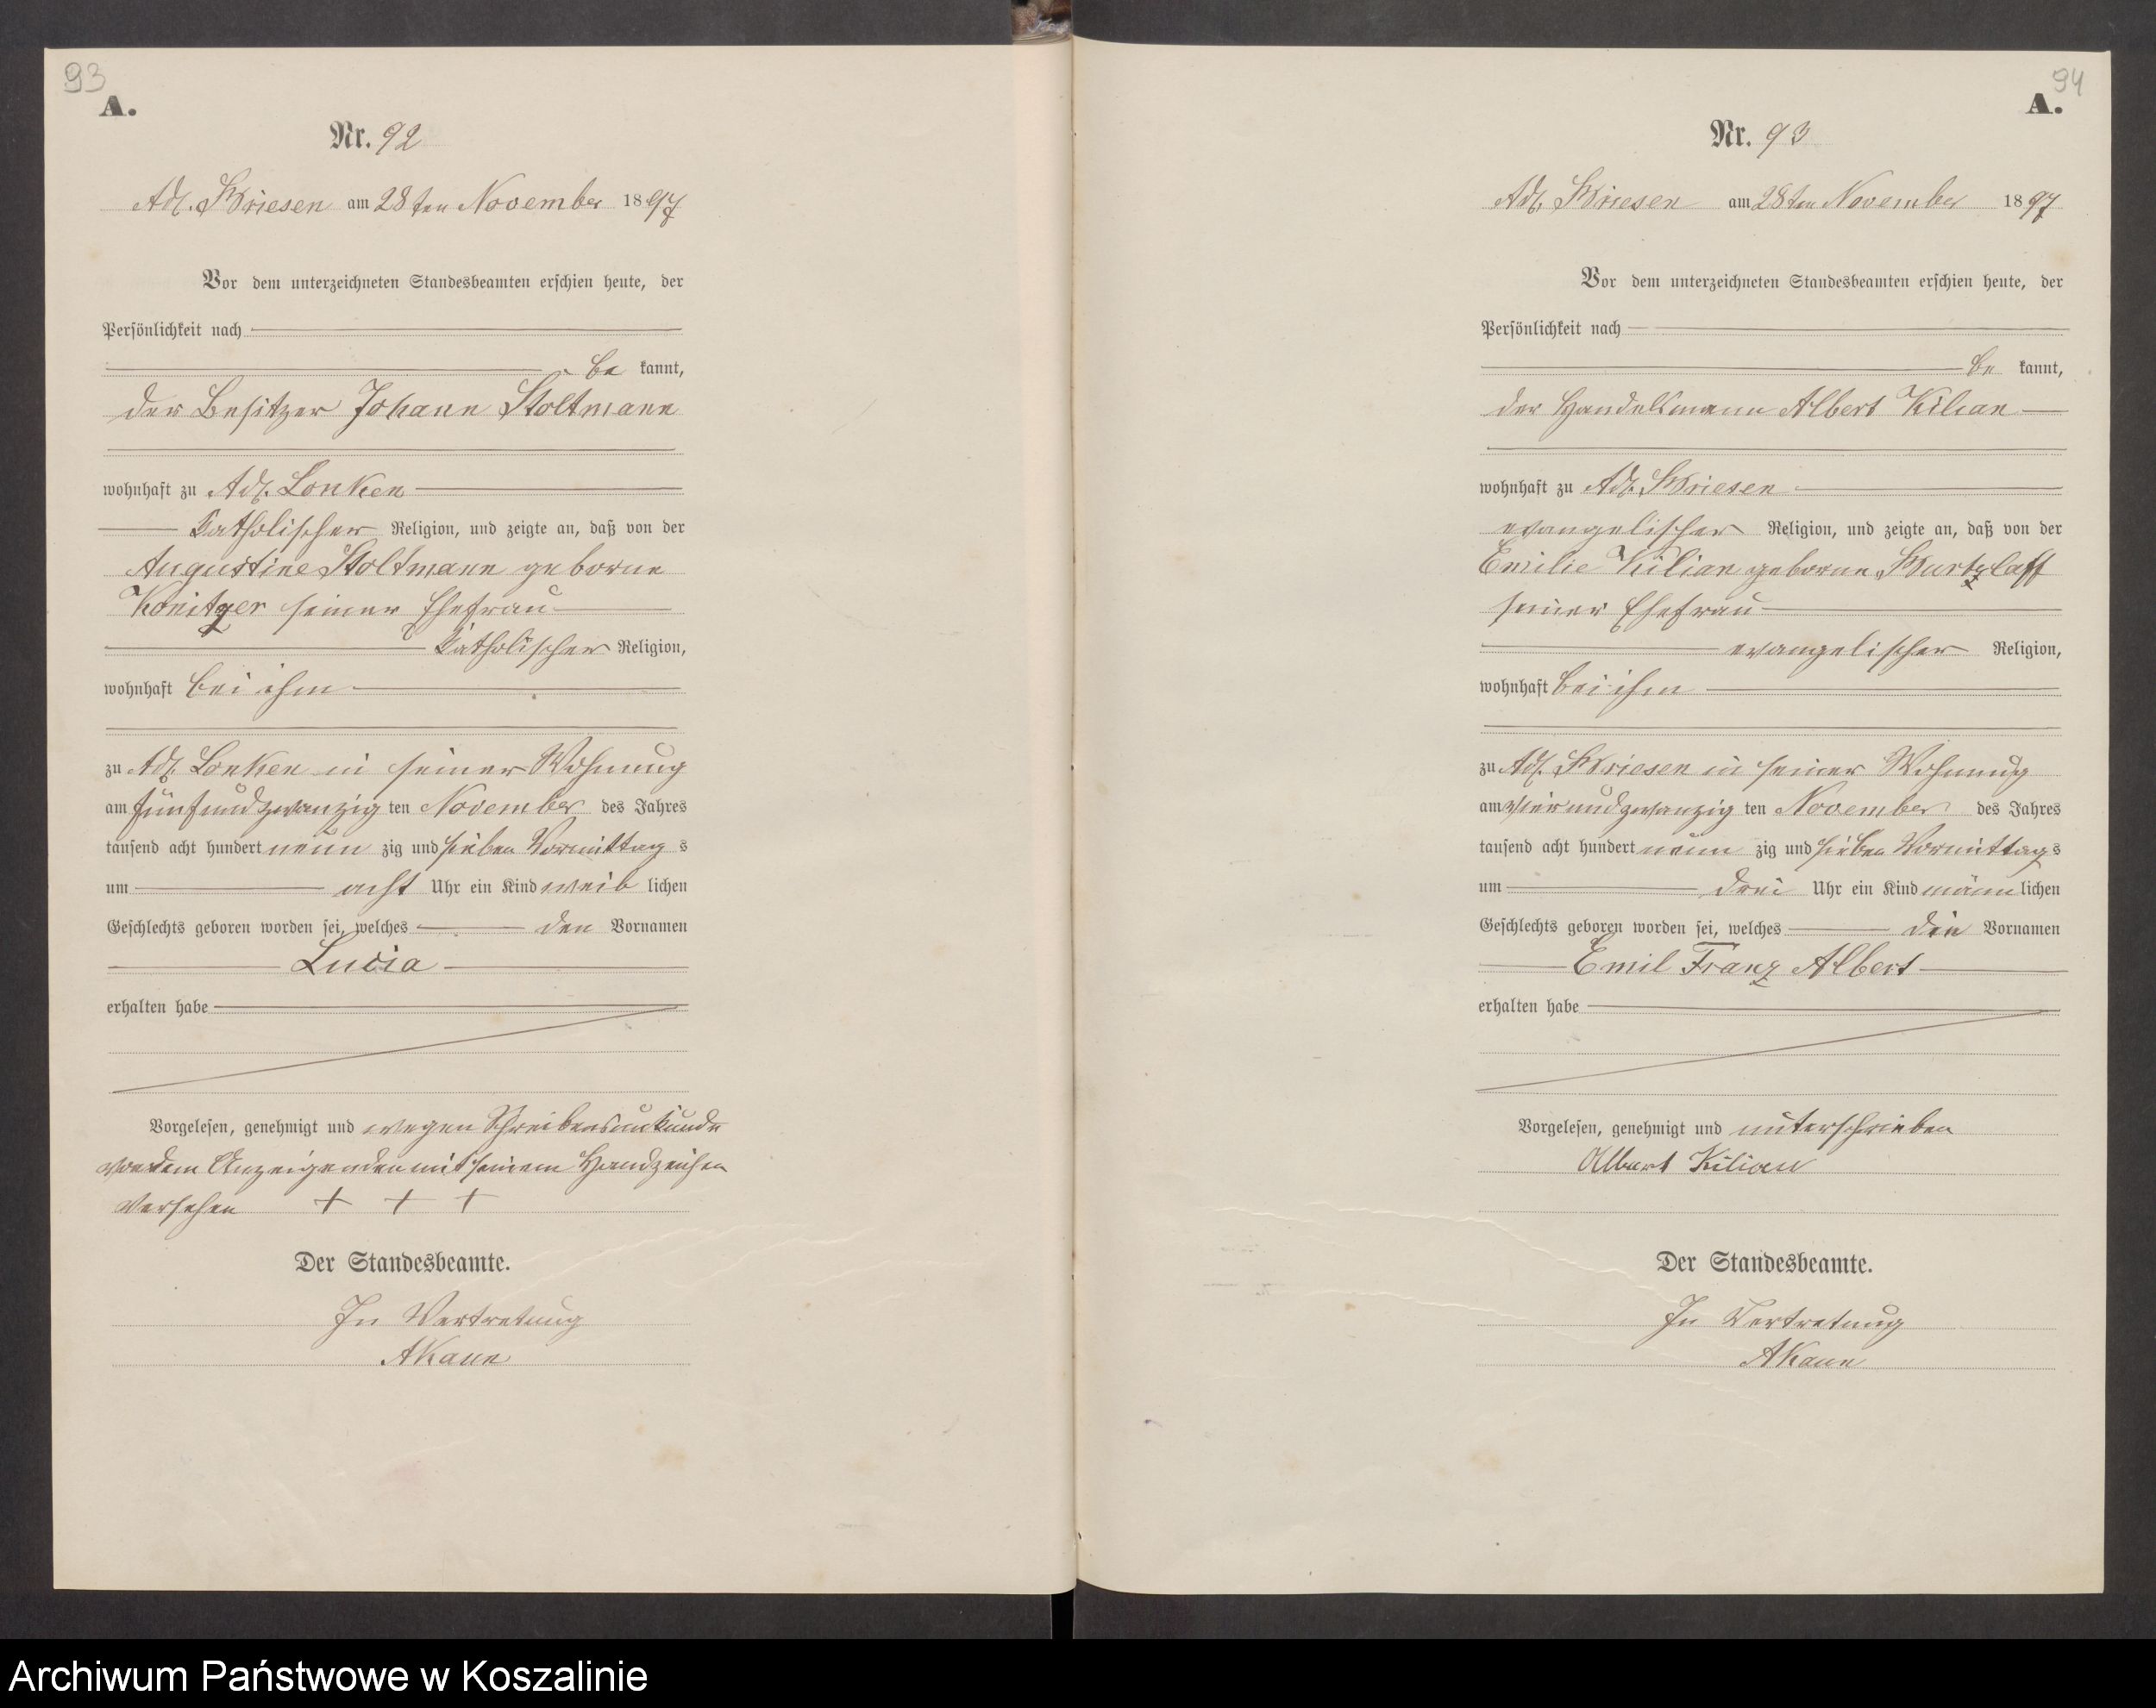 93
A.
Nr. 92
Adl. Briesen am 28ten November 1897
Vor dem unterzeichneten Standesbeamten erschien heute, der
Persönlichkeit nach
be kannt,
der Besitzer Johann Stoltmann
wohnhaft zu Adl. Lonken
katholischer Religion, und zeigte an, daß von der
Augustine Stoltmann geborne
Konitzer seiner Ehefrau
katholischer Religion,
wohnhaft bei ihm
zu Adl. Lonken in seiner Wohnung
am fünfundzwanzig ten November des Jahres
tausend acht hundert neun zig und sieben Vormittag s
um acht Uhr ein Kind weib lichen
Geschlechts geboren worden sei, welches den Vornamen
Lucia
erhalten habe
Vorgelesen, genehmigt und wegen Schreibensunkunde
von dem Anzeigenden mit seinem Handzeichen
versehen + + +
Der Standesbeamte.
In Vertretung
AKann
94
A.
Nr. 93
Adl. Briesen am 28ten November 1897
Vor dem unterzeichneten Standesbeamten erschien heute, der
Persönlichkeit nach
be kannt,
der Handelsmann Albert Kilian
wohnhaft zu Adl. Briesen
evangelischer Religion, und zeigte an, daß von der
Emilie Kilian geborne Murtzlaff
seiner Ehefrau
evangelischer Religion,
wohnhaft bei ihm
zu Adl. Briesen in seiner Wohnung
am vierundzwanzig ten November des Jahres
tausend acht hundert neun zig und sieben Vormittag s
um drei Uhr ein Kind männ lichen
Geschlechts geboren worden sei, welches die Vornamen
Emil Franz Albert
erhalten habe
Vorgelesen, genehmigt und unterschrieben
Albert Kilian
Der Standesbeamte.
In Vertretung
AKann
Archiwum Państwowe w Koszalinie